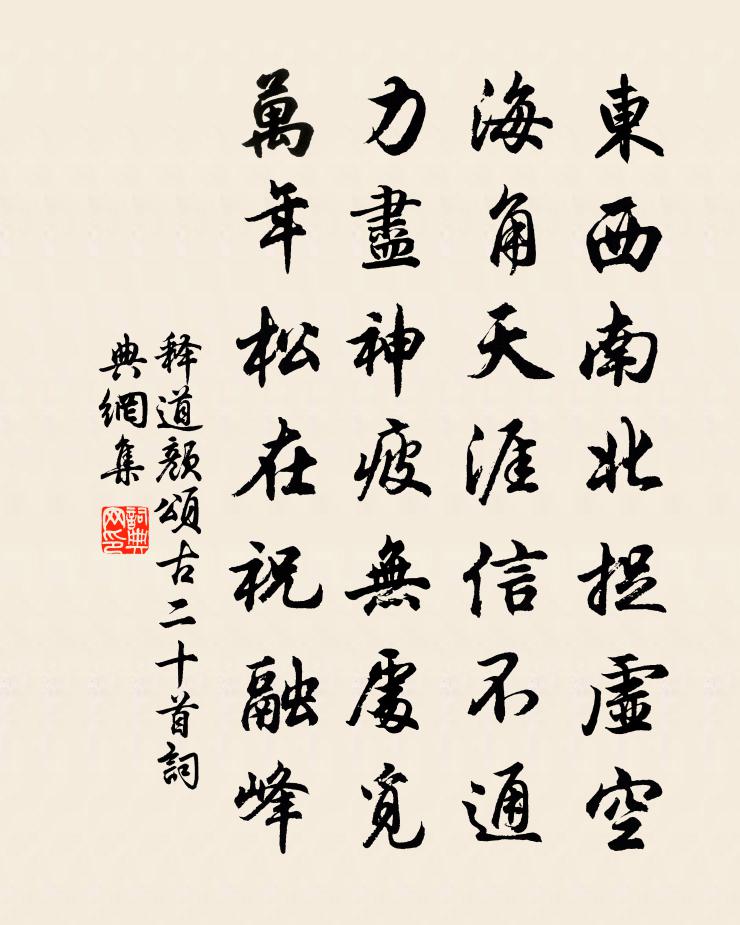 東西南北捉虛空
海角天涯信不通
力盡神疲無處覓
萬年松在祝融峰
释道颜頌古二十首詞
典網集
詞典
网印